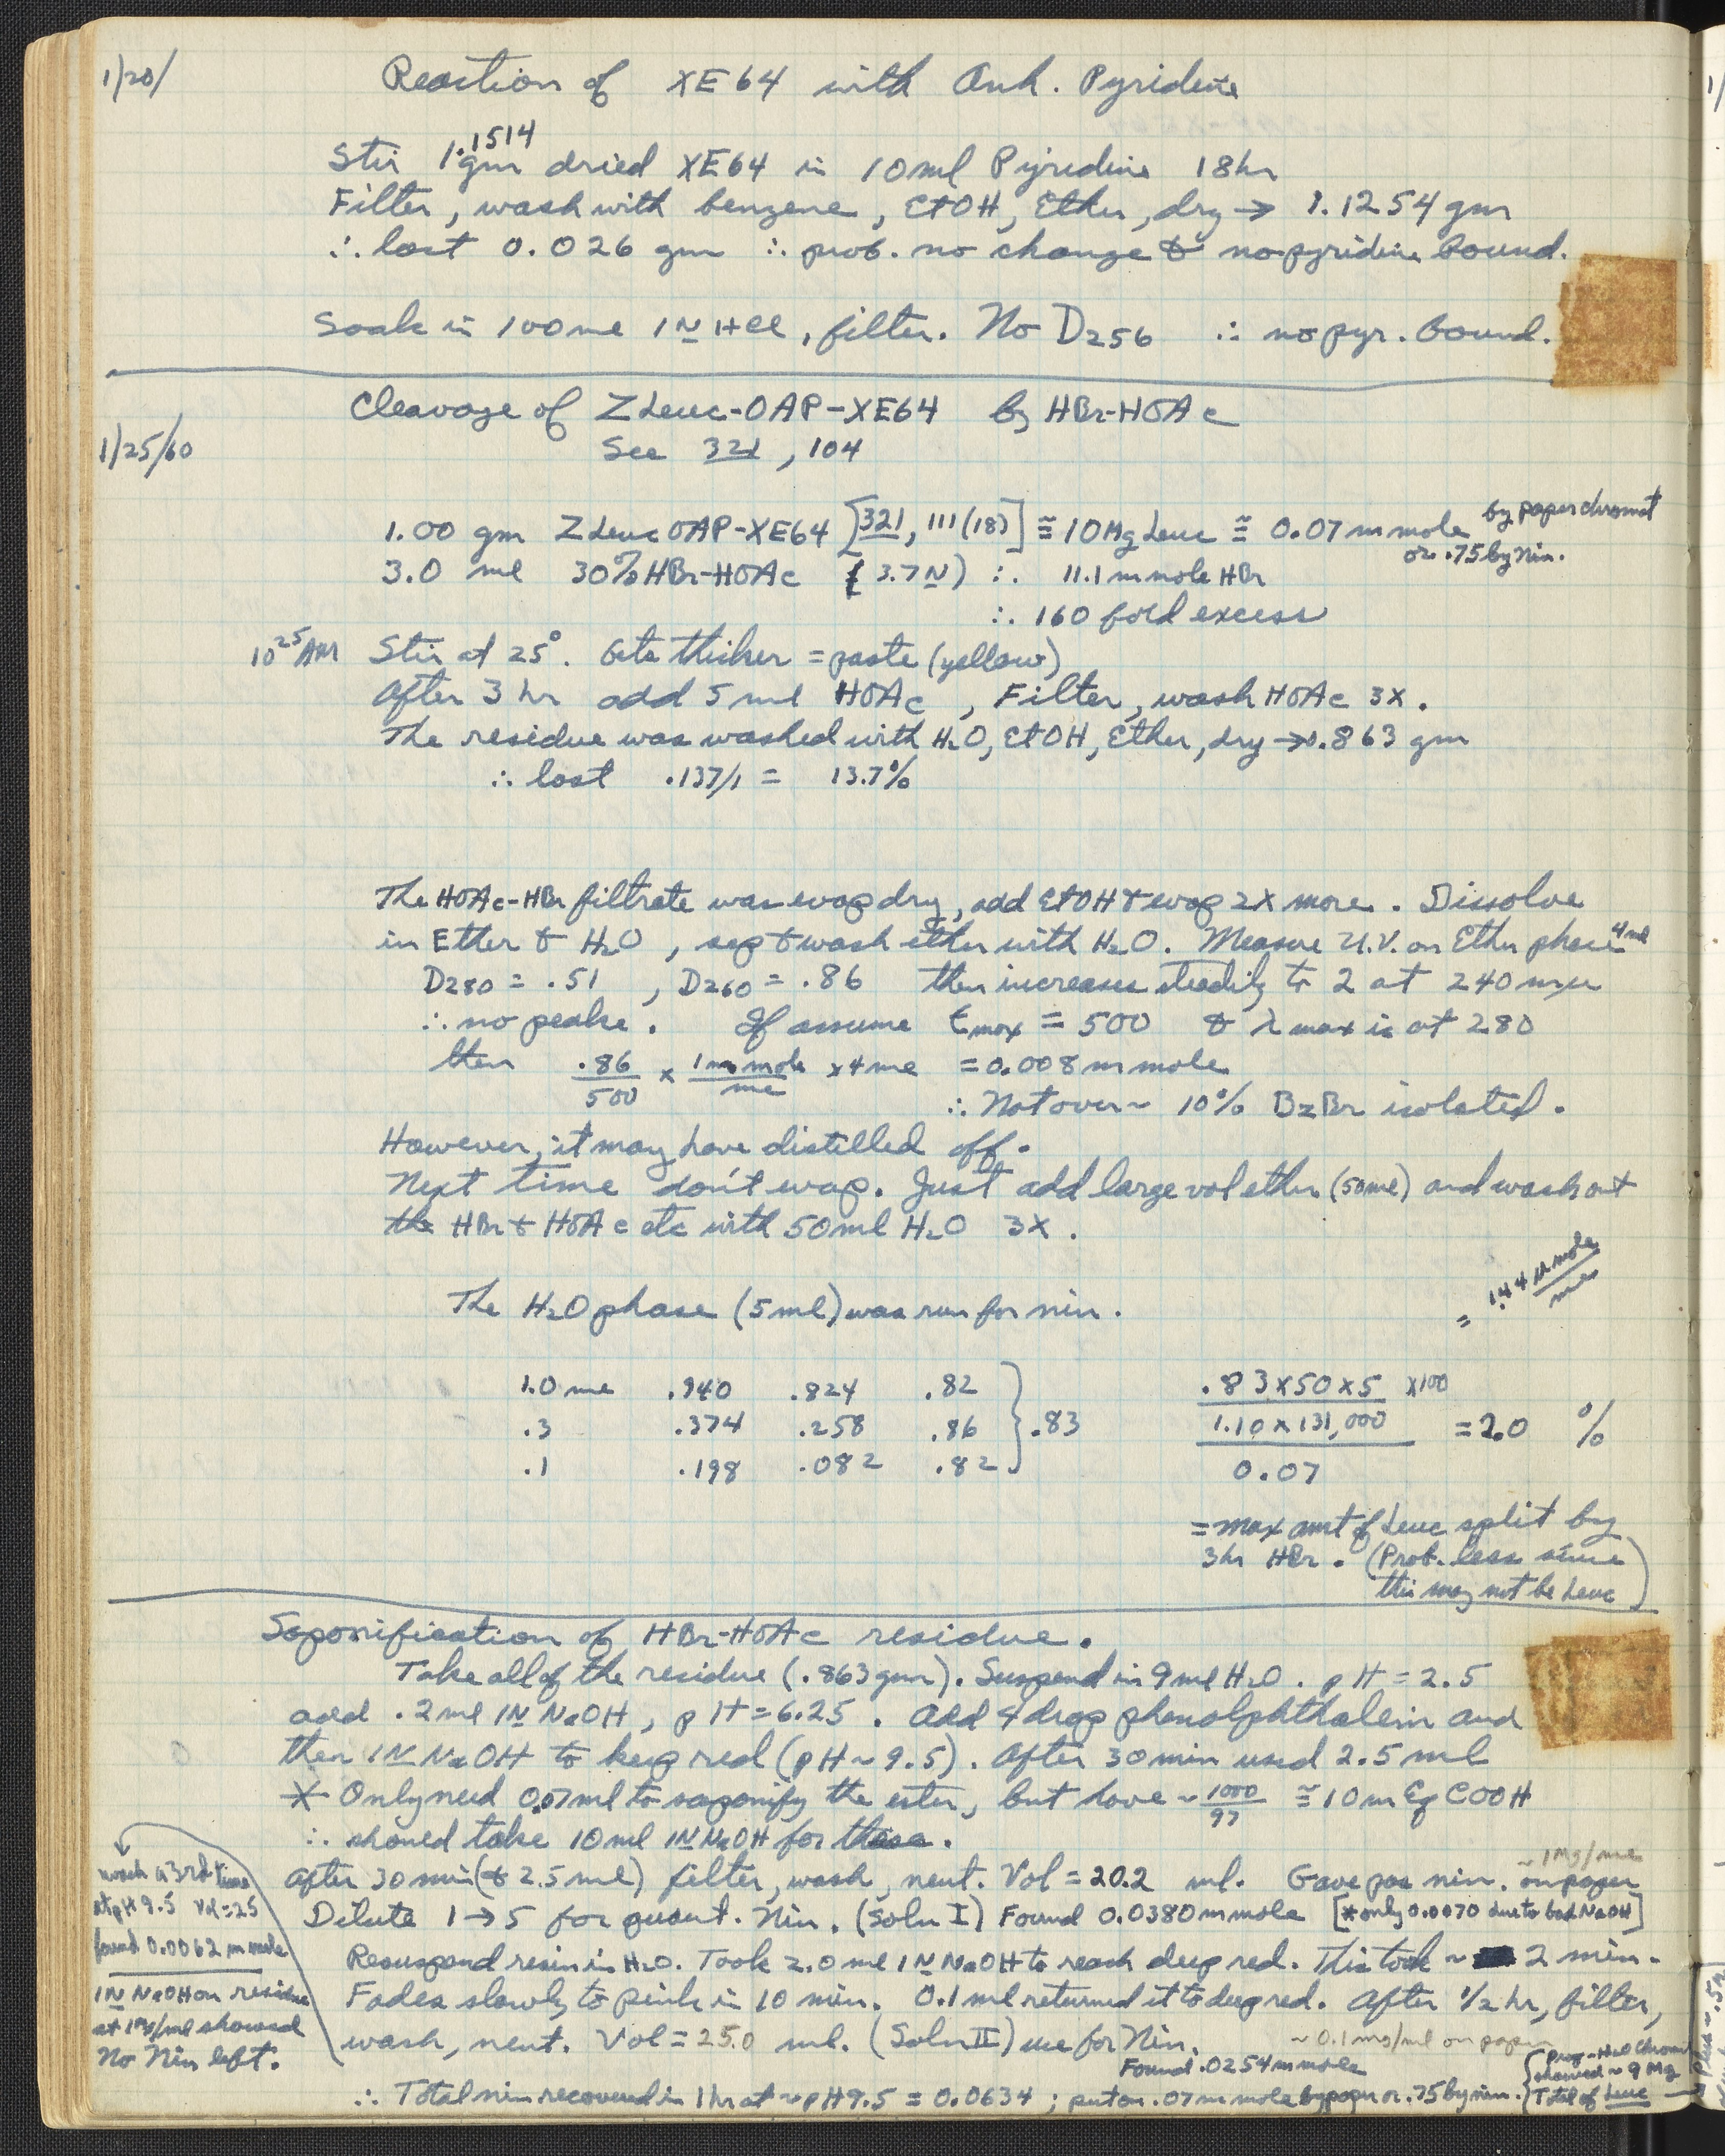 1/20/ Reaction of XE64 with Anh. Pyridine
Stir 1.1514 gm dried XE64 in 10 ml Pyridine 18 hr
Filter, wash with benzene, EtOH, Ether, dry → 1.1254 gm
∴ lost 0.026 gm ∴ prob. no change & no pyridine bound.
Soak in 100 ml 1N HCl, filter. No D256 ∴ no pyr. bound.
Cleavage of ZLeuc-OAP-XE64 by HBr-HOAc
1/25/60 See 321, 104
1.00 gm ZLeucOAP-XE64 [321, 111(18)] ≅ 10 Mg Leuc ≅ 0.07 m mole by paper chromat
or .75 by Nin.
3.0 ml 30% HBr-HOAc (3.7N) ∴ 11.1 m mole HBr
∴ 160 fold excess
10 25 AM Stir at 25°. Gets thicker = paste (yellow)
After 3 hr add 5 ml HOAc, Filter, wash HOAc 3X.
The residue was washed with H2O, EtOH, Ether, dry → 0.863 gm
∴ lost .137/1 = 13.7%
The HOAc-HBr filtrate was evap dry, add EtOH & evap 2X more. Dissolve
in Ether & H2O, sep & wash ether with H2O. Measure U.V. on Ether phase 4 ml
D280 = .51, D260 = .86 then increases steadily to 2 at 240 mμ
∴ no peaks. If assume ε max = 500 & λ max is at 280
then .86/500 x 1 m mole/ml x 4 ml = 0.008 m mole
∴ Not over ~ 10% BzBr isolated.
However, it may have distilled off.
Next time don't evap. Just add large vol ether (50ml) and wash out
the HBr & HOAc etc with 50 ml H2O 3X.
The H2O phase (5 ml) was run for nin. = .144 μ mole/ml
1.0 ml .940 .824 .82
.3 .374 .258 .86 } .83
.1 .198 .082 .82
.83 x 50 x 5 x 100
1.10 x 131,000 = 2.0 %
0.07
= max amt of Leuc split by
3 hr HBr. (Prob. less since
this may not be Leuc)
Saponification of HBr-HOAc residue.
Take all of the residue (.863 gm). Suspend in 9 ml H2O. pH = 2.5
add .2 ml 1N NaOH, pH = 6.25. Add 4 drops phenolphthalein and
then 1N NaOH to keep red (pH ~ 9.5). After 30 min used 2.5 ml
* Only need 0.07 ml to saponify the ester, but have ~ 1000/97 ≅ 10 m Eq COOH
∴ should take 10 ml 1N NaOH for these.
After 30 min (& 2.5 ml) filter, wash, neut. Vol = 20.2 ml. Gave pos nin. on paper ~ 1 Mg/ml
Dilute 1 → 5 for quant. Nin. (Soln I) Found 0.0380 m mole [* only 0.0070 due to bad NaOH]
Resuspend resin in H2O. Took 2.0 ml 1N NaOH to reach deep red. This took ~ 2 min.
Fades slowly to pink in 10 min. 0.1 ml returned it to deep red. After 1/2 hr, filter,
wash, neut. Vol = 25.0 ml. (Soln II) use for Nin. ~ 0.1 mg/ml on paper
Found .0254 m mole
∴ Total nin recovered in 1 hr at ~ pH 9.5 = 0.0634; put on .07 m mole by paper or .75 by nin.
{ prop-H2O Chrom
showed ~ 9 Mg
Total of Leuc
wash a 3rd time
at pH 9.5 Vol = 25
found 0.0062 m mole
1N NaOH on residue
at showed
No Nin left.